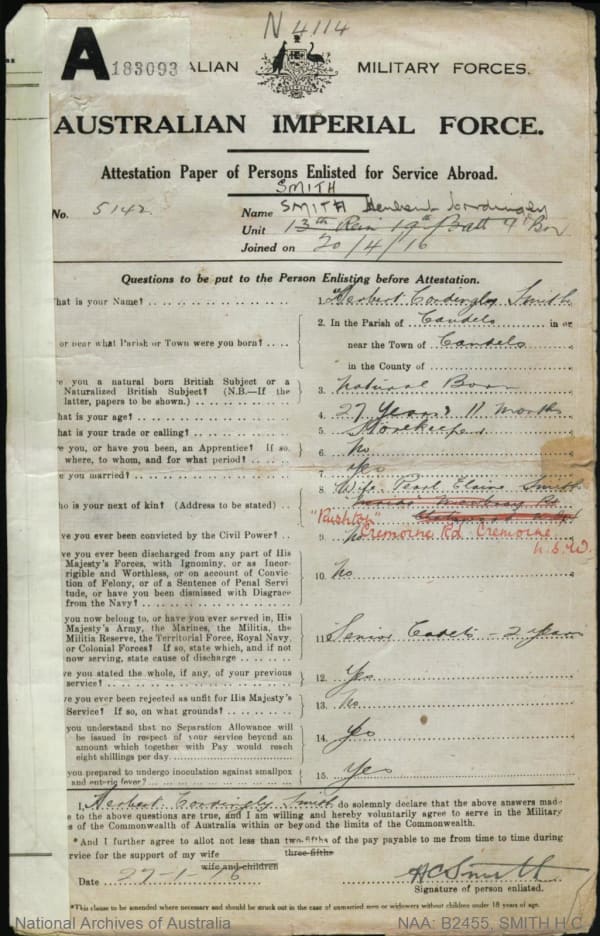 N 4114
A 183093
ALIAN MILITARY FORCES.
AUSTRALIAN IMPERIAL FORCE.
Attestation Paper of Persons Enlisted for Service Abroad.
SMITH
No. 5142 Name SMITH Herbert Cordingly
Unit 13th Rein 19th Batt
Joined on 20/4/16
Questions to be put to the Person Enlisting before Attestation.
hat is your Name? 1. Herbert Cordingly Smith
or near what Parish or Town were you born? 2. In the Parish of Candelo in or
near the Town of Candelo
in the County of
e you a natural born British Subject or a
Naturalized British Subject? (N.B.—If the
latter, papers to be shown.) 3. Natural Born
hat is your age? 4. 27 Years 11 Months
hat is your trade or calling? 5. Storekeeper
e you, or have you been, an Apprentice? If so,
where, to whom, and for what period? 6. No
e you married? 7. Yes
ho is your next of kin? (Address to be stated) 8. Wife Pearl Elaine Smith
Cremorne Rd Cremorne
N.S.W.
ve you ever been convicted by the Civil Power? 9. No
ve you ever been discharged from any part of His
Majesty's Forces, with Ignominy, or as Incor-
rigible and Worthless, or on account of Convic-
tion of Felony, or of a Sentence of Penal Servi
tude, or have you been dismissed with Disgrace
from the Navy? 10. No
you now belong to, or have you ever served in, His
Majesty's Army, the Marines, the Militia, the
Militia Reserve, the Territorial Force, Royal Navy,
or Colonial Forces? If so, state which, and if not
now serving, state cause of discharge 11. Senior Cadets - 2 years
ve you stated the whole, if any, of your previous
service? 12. Yes
ve you ever been rejected as unfit for His Majesty's
Service? If so, on what grounds? 13. No
you understand that no Separation Allowance will
be issued in respect of your service beyond an
amount which together with Pay would reach
eight shillings per day. 14. Yes
you prepared to undergo inoculation against smallpox
and enteric fever? 15. Yes
I, Herbert Cordingly Smith do solemnly declare that the above answers made
e to the above questions are true, and I am willing and hereby voluntarily agree to serve in the Military
s of the Commonwealth of Australia within or beyond the limits of the Commonwealth.
*And I further agree to allot not less than two-fifths of the pay payable to me from time to time during
three-fifths
rvice for the support of my wife
wife and children
Date 22-1-16 H C Smith
Signature of person enlisted.
*This clause to be amended where necessary and should be struck out in the case of unmarried men or widowers without children under 18 years of age.
National Archives of Australia NAA: B2455, SMITH H C